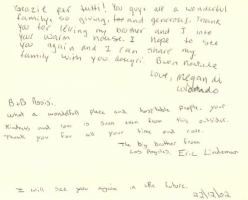 Grazie per tutti! You guys are a wonderful
family, so giving, and generous. Thank
you for letting my brother and I into
your warm house. I hope to see
you again and I can share my
family with you always. Buon Natale
Love, Megan di
Colorado
B+B Assisi.
What a wonderful place and hospitable people, your
kindness and love is seen even from the outside.
Thank you for all your time and care.
The big brother from
Los Angeles, Eric Lindeman
I will see you again in the future.
22/12/02